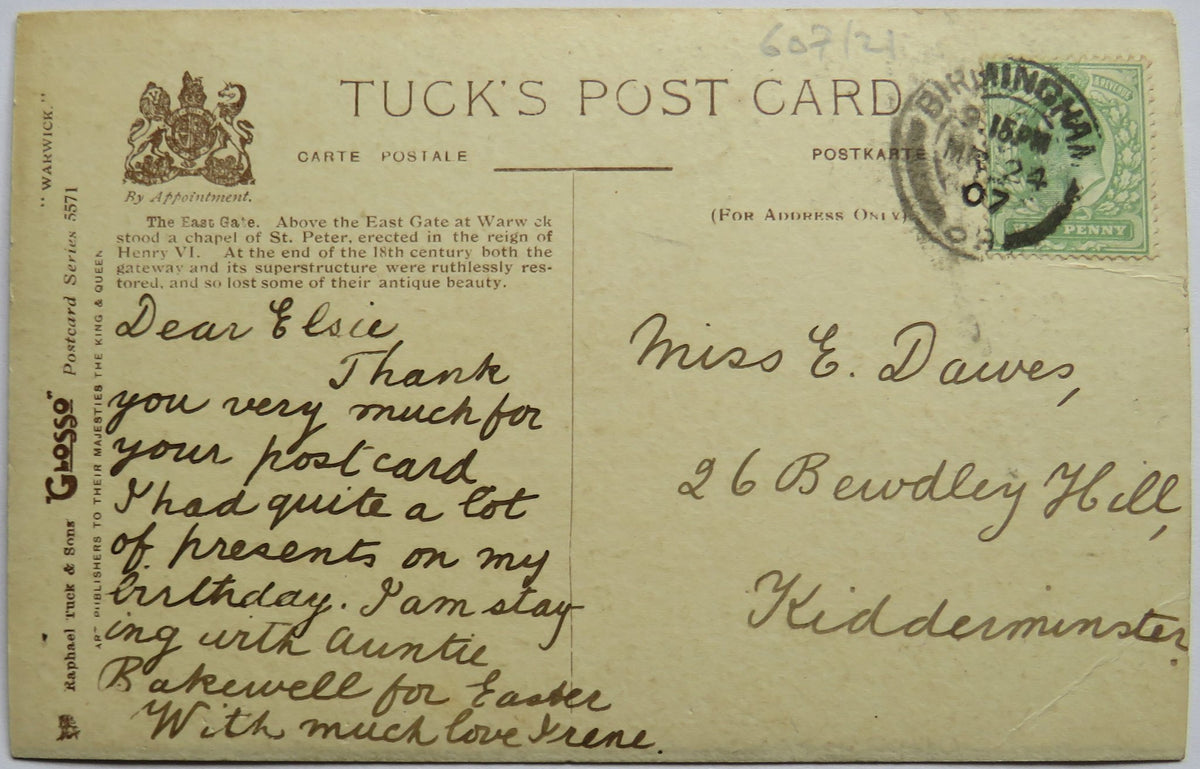 607/21
TUCK'S POST CARD
CARTE POSTALE
POSTKARTE
(FOR ADDRESS ONLY)
BIRMINGHAM
9.15PM
MR 24
07
HALFPENNY
By Appointment.
The East Gate. Above the East Gate at Warwick
stood a chapel of St. Peter, erected in the reign of
Henry VI. At the end of the 18th century both the
gateway and its superstructure were ruthlessly res-
tored, and so lost some of their antique beauty.
Dear Elsie
Thank
you very much for
your postcard
I had quite a lot
of presents on my
birthday. I am stay
ing with Auntie
Bakewell for Easter
With much love Irene.
Miss E. Dawes,
26 Bewdley Hill,
Kidderminster.
Raphael Tuck & Sons "GLOSSO" Postcard Series 5571 "WARWICK."
ART PUBLISHERS TO THEIR MAJESTIES THE KING & QUEEN